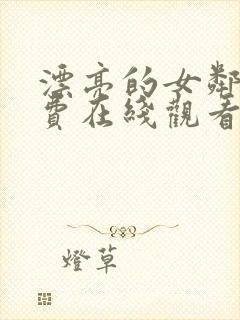 漂亮的女鄰
費在綫觀看
燈草